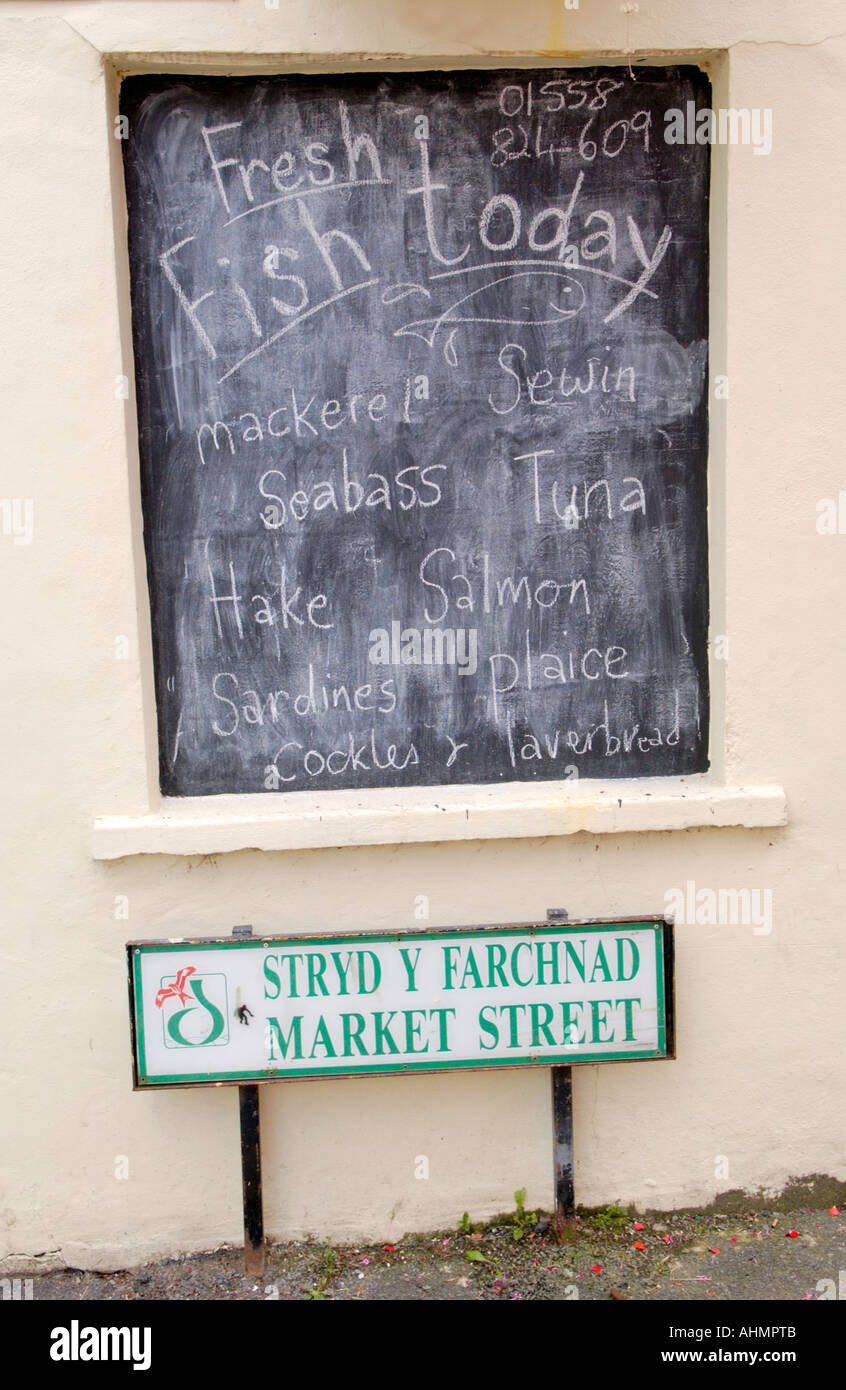 01558
824-609
Fresh
Fish today
mackerel Sewin
Seabass Tuna
Hake Salmon
Sardines plaice
Cockles & laverbread
STRYD Y FARCHNAD
MARKET STREET
alamy
Image ID: A1HMPTB
www.alamy.com